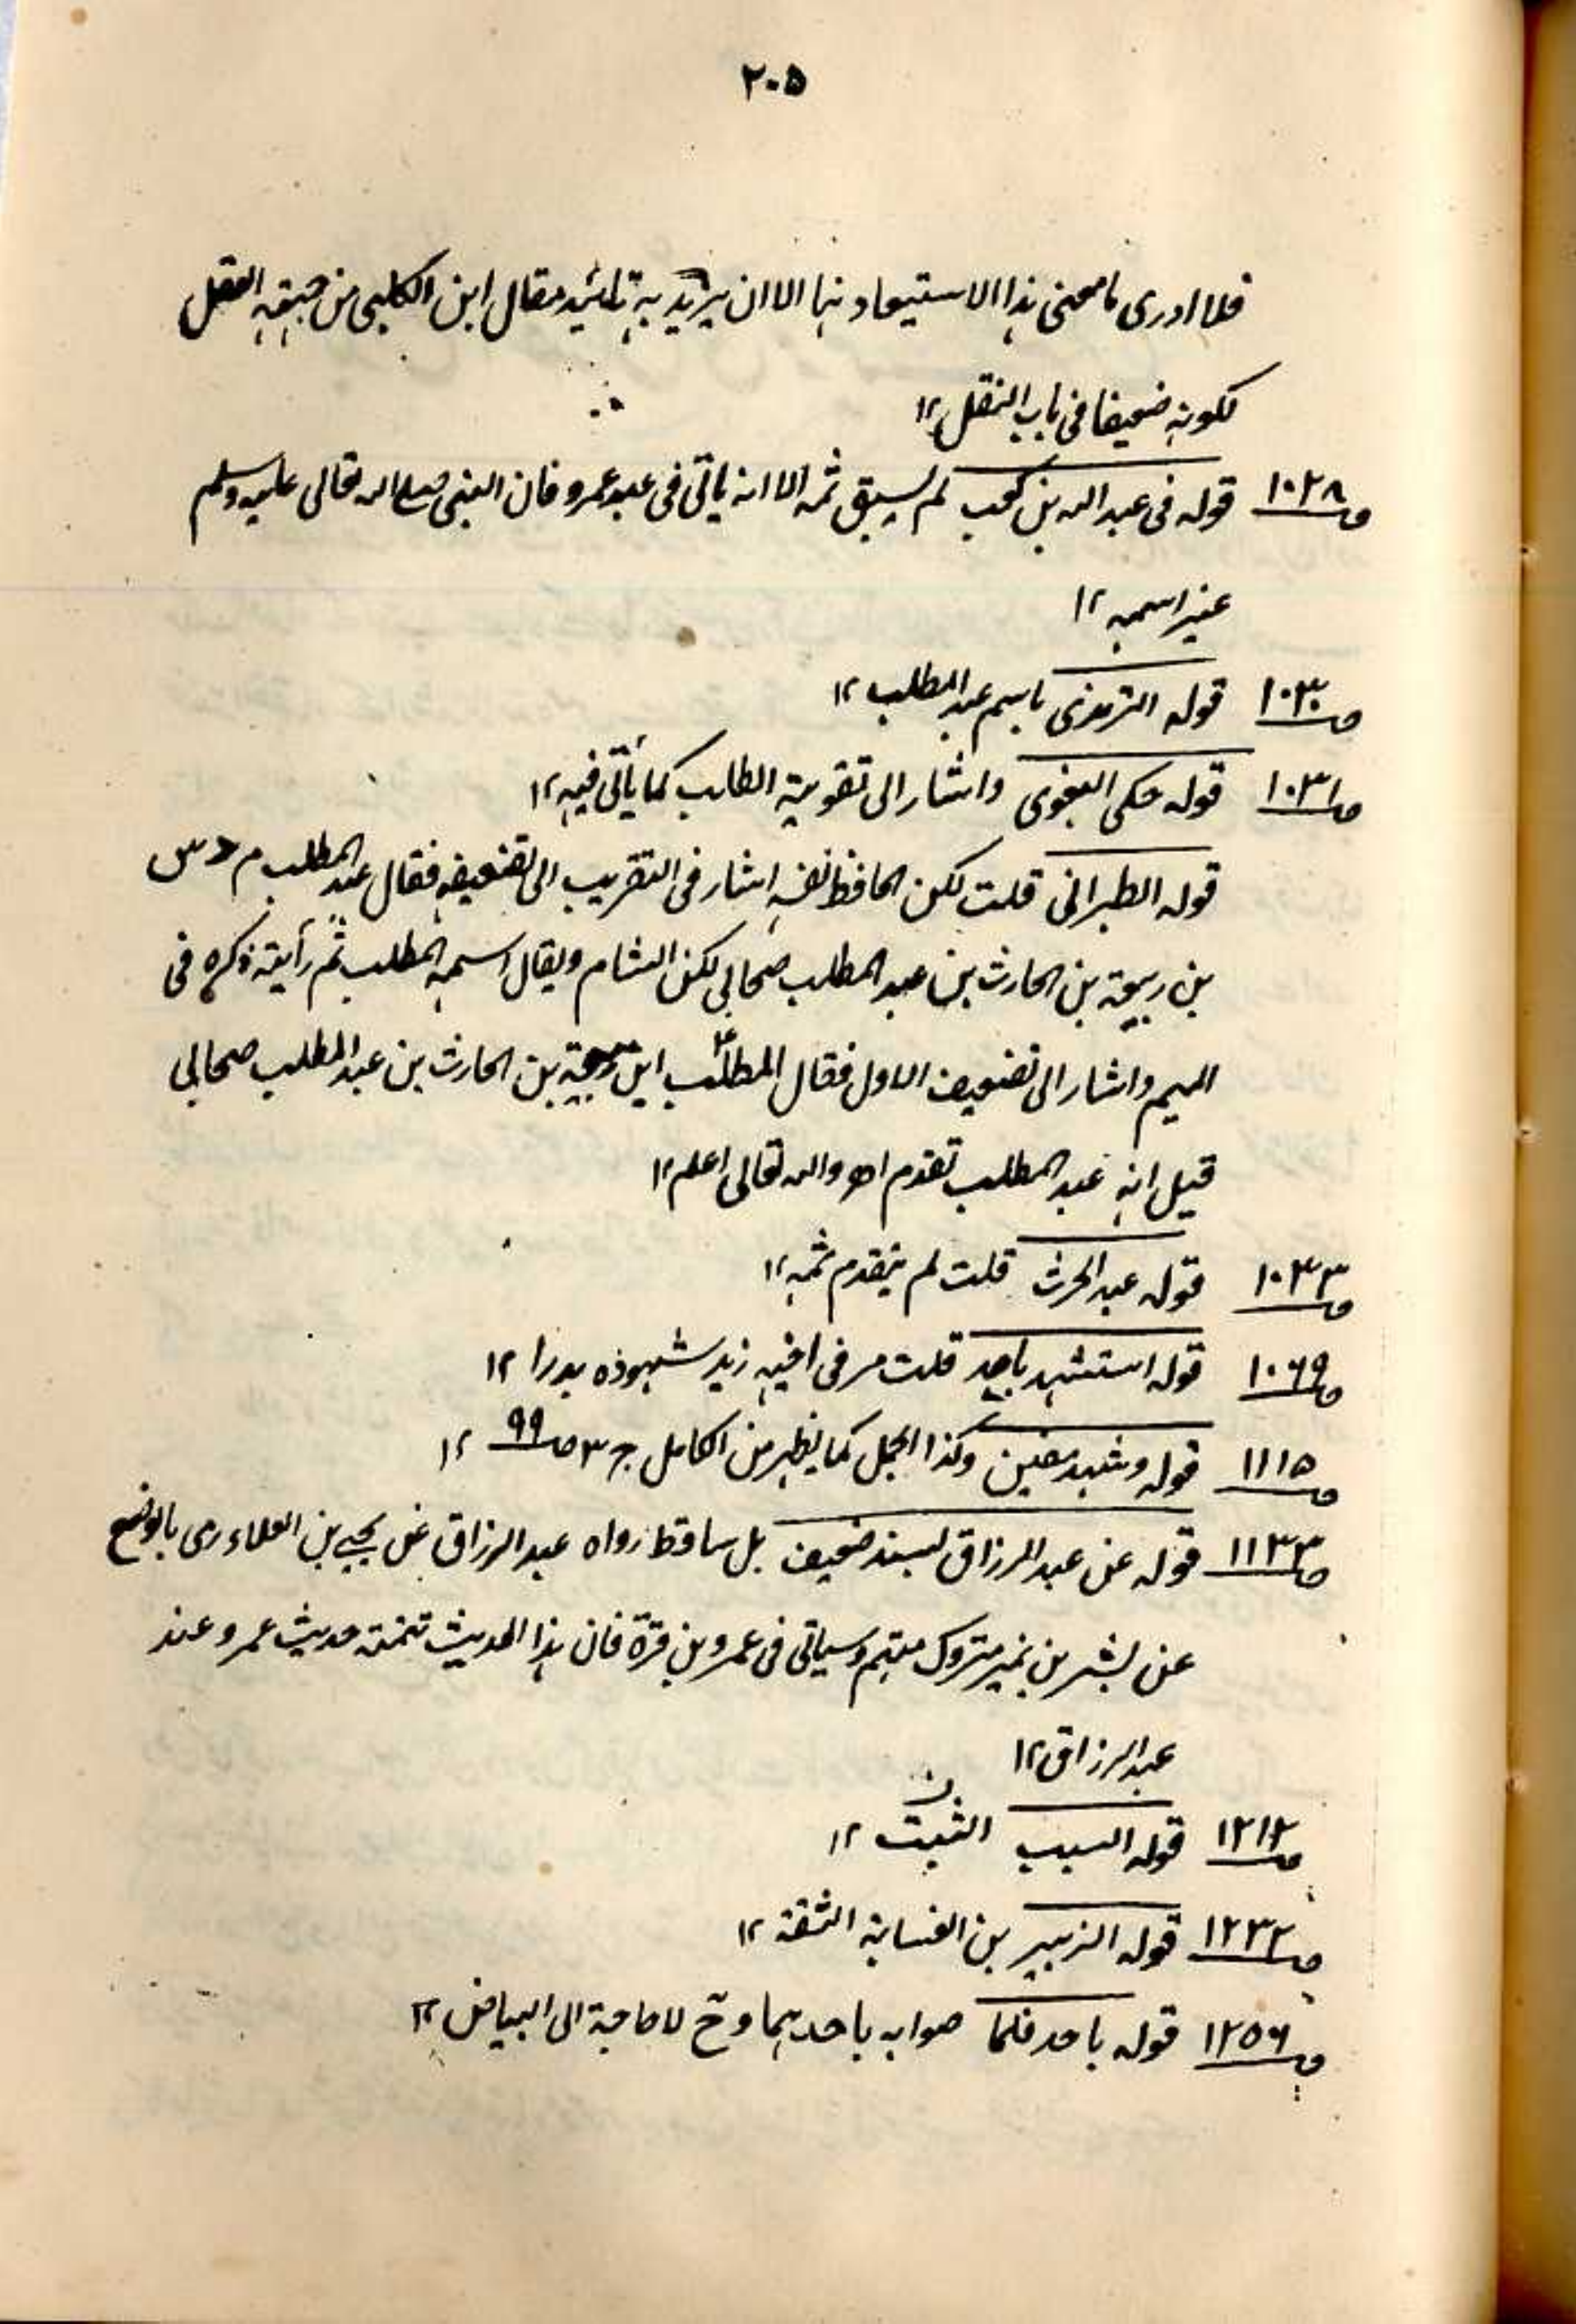 ٢٠٥
فلا ادرى ما معنى هذا الاستيعاد هنا الا ان يريد به تائيد مقال ابن الكلبى من جهة العقل
لكونه ضعيفا فى باب النقل ١٢
صـ ١٠٢٨ قوله فى عبد الله بن كعب لم يسبق ثمه الا انه ياتى فى عبد عمرو فان النبى صلى الله تعالى عليه وسلم
غير اسمه ١٢
صـ ١٠٣٠ قوله الترمذى باسم عبد المطلب ١٢
صـ ١٠٣١ قوله حكى البغوى واشار الى تقوية الطالب كما يأتى فيه ١٢
قوله الطبرانى قلت لكن الحافظ نفسه اشار فى التقريب الى تضعيفه فقال عبد المطلب م د س
بن ربيعة بن الحارث بن عبد المطلب صحابى سكن الشام ويقال اسمه المطلب ثم رأيته ذكره فى
الميم واشار الى تضعيف الاول فقال المطلب ابن ربيعة بن الحارث بن عبد المطلب صحابى
قيل انه عبد المطلب تقدم اھ والله تعالى اعلم ١٢
صـ ١٠٤٣ قوله عبد الحرث قلت لم يتقدم ثمه ١٢
صـ ١٠٦٩ قوله استشهد باحد قلت مر فى اخيه زيد شهوده بدرا ١٢
صـ ١١١٥ قوله وشهد صفين وكذا الجمل كما يظهر من الكامل ج ٣ صـ ٩٩ ١٢
صـ ١١٣٣ قوله عن عبد الرزاق بسند ضعيف بل ساقط رواه عبد الرزاق عن يحيى بن العلاء رمى بالوضع
عن بشر بن نمير متروك متهم وسياتى فى عمرو بن قرة فان هذا الحديث تتمة حديث عمرو عند
عبد الرزاق ١٢
صـ ١٢١٢ قوله السبب الثبت ١٢
ن
صـ ١٢٣٢ قوله الزبير بن الغسانة الثقة ١٢
صـ ١٢٥٦ قوله باحد فلما صوابه باحدهما وح لا حاجة الى البياض ١٢